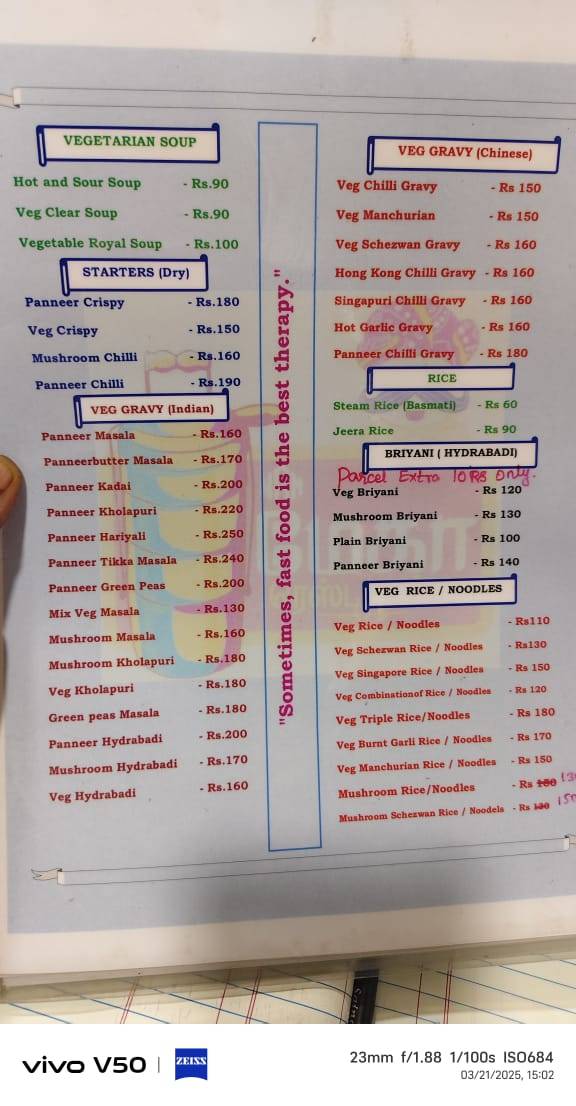 VEGETARIAN SOUP
Hot and Sour Soup - Rs.90
Veg Clear Soup - Rs.90
Vegetable Royal Soup - Rs.100
STARTERS (Dry)
Panneer Crispy - Rs.180
Veg Crispy - Rs.150
Mushroom Chilli - Rs.160
Panneer Chilli - Rs.190
VEG GRAVY (Indian)
Panneer Masala - Rs.160
Panneerbutter Masala - Rs.170
Panneer Kadai - Rs.200
Panneer Kholapuri - Rs.220
Panneer Hariyali - Rs.250
Panneer Tikka Masala - Rs.240
Panneer Green Peas - Rs.200
Mix Veg Masala - Rs.130
Mushroom Masala - Rs.160
Mushroom Kholapuri - Rs.180
Veg Kholapuri - Rs.180
Green peas Masala - Rs.180
Panneer Hydrabadi - Rs.200
Mushroom Hydrabadi - Rs.170
Veg Hydrabadi - Rs.160
"Sometimes, fast food is the best therapy."
VEG GRAVY (Chinese)
Veg Chilli Gravy - Rs 150
Veg Manchurian - Rs 150
Veg Schezwan Gravy - Rs 160
Hong Kong Chilli Gravy - Rs 160
Singapuri Chilli Gravy - Rs 160
Hot Garlic Gravy - Rs 160
Panneer Chilli Gravy - Rs 180
RICE
Steam Rice (Basmati) - Rs 60
Jeera Rice - Rs 90
BRIYANI ( HYDRABADI)
Parcel Extra 10 Rs only.
Veg Briyani - Rs 120
Mushroom Briyani - Rs 130
Plain Briyani - Rs 100
Panneer Briyani - Rs 140
VEG RICE / NOODLES
Veg Rice / Noodles - Rs110
Veg Schezwan Rice / Noodles - Rs130
Veg Singapore Rice / Noodles - Rs 150
Veg Combinationof Rice / Noodles - Rs 120
Veg Triple Rice/Noodles - Rs 180
Veg Burnt Garli Rice / Noodles - Rs 170
Veg Manchurian Rice / Noodles - Rs 150
Mushroom Rice/Noodles - Rs
Mushroom Schezwan Rice / Noodels - Rs
vivo V50 | ZEISS
23mm f/1.88 1/100s ISO684
03/21/2025, 15:02